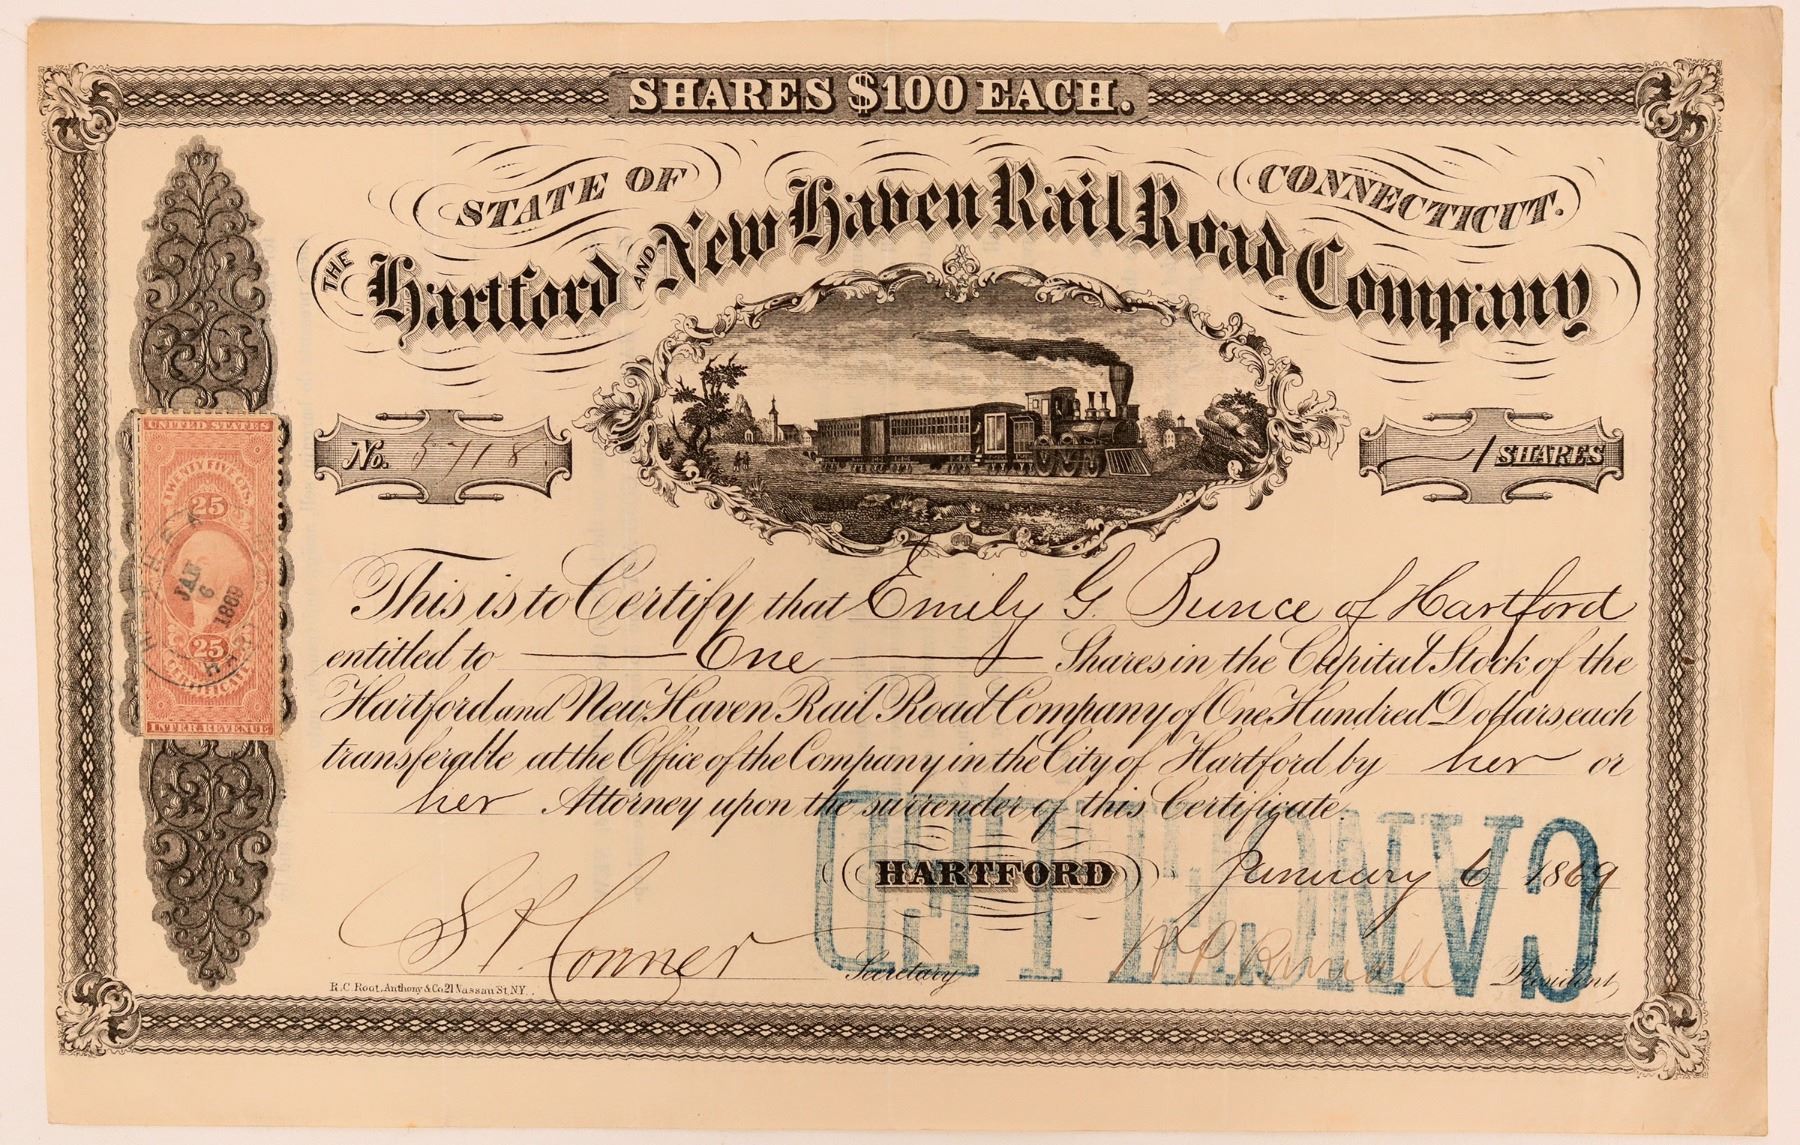 SHARES $100 EACH.
STATE OF CONNECTICUT.
THE Hartford AND New Haven Rail Road Company
No. 5718
1 SHARES
UNITED STATES
TWENTY FIVE CTS.
25
JAN
6
1869
25
CERTIFICATE
INTER. REVENUE
This is to Certify that Emily G. Bunce of Hartford
entitled to One Shares in the Capital Stock of the
Hartford and New Haven Rail Road Company of One Hundred Dollars each
transferable at the Office of the Company in the City of Hartford by her or
her Attorney upon the surrender of this Certificate.
HARTFORD January 6 1869
CANCELLED
Secretary
President
R.C. Root, Anthony & Co. 21 Nassau St. N.Y.